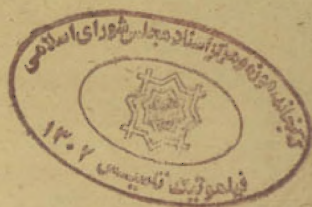 کتابخانه موزه و مرکز اسناد مجلس شورای اسلامی
تأسیس ۱۳۰۲